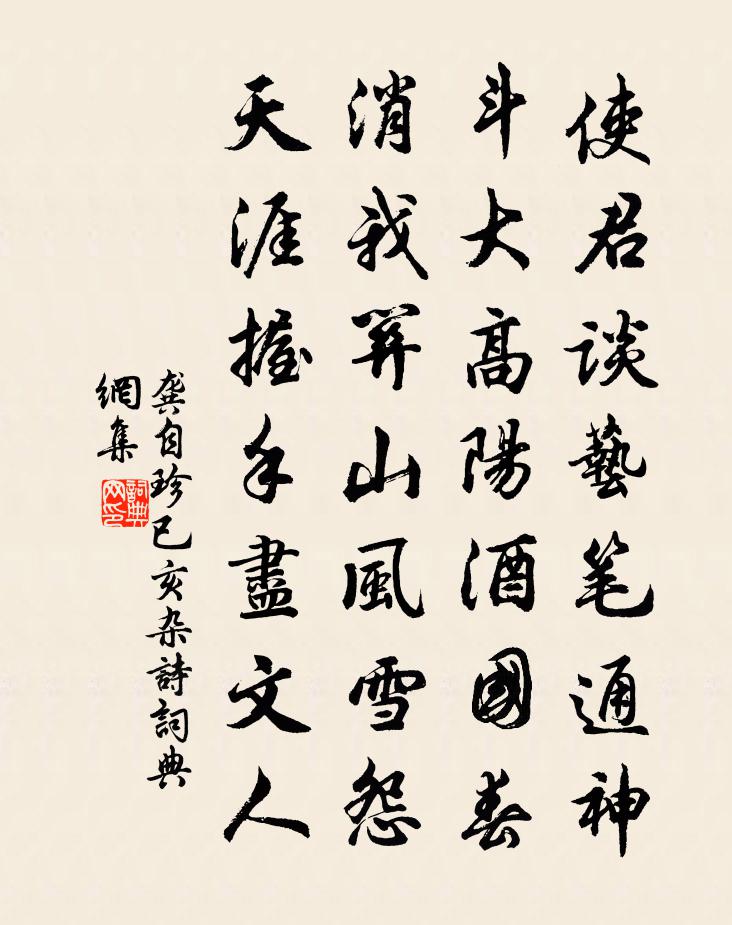 使君談藝笔通神
斗大高陽酒國春
消我關山風雪怨
天涯握手盡文人
龔自珍已亥杂詩詞典
網集
詞典
网印